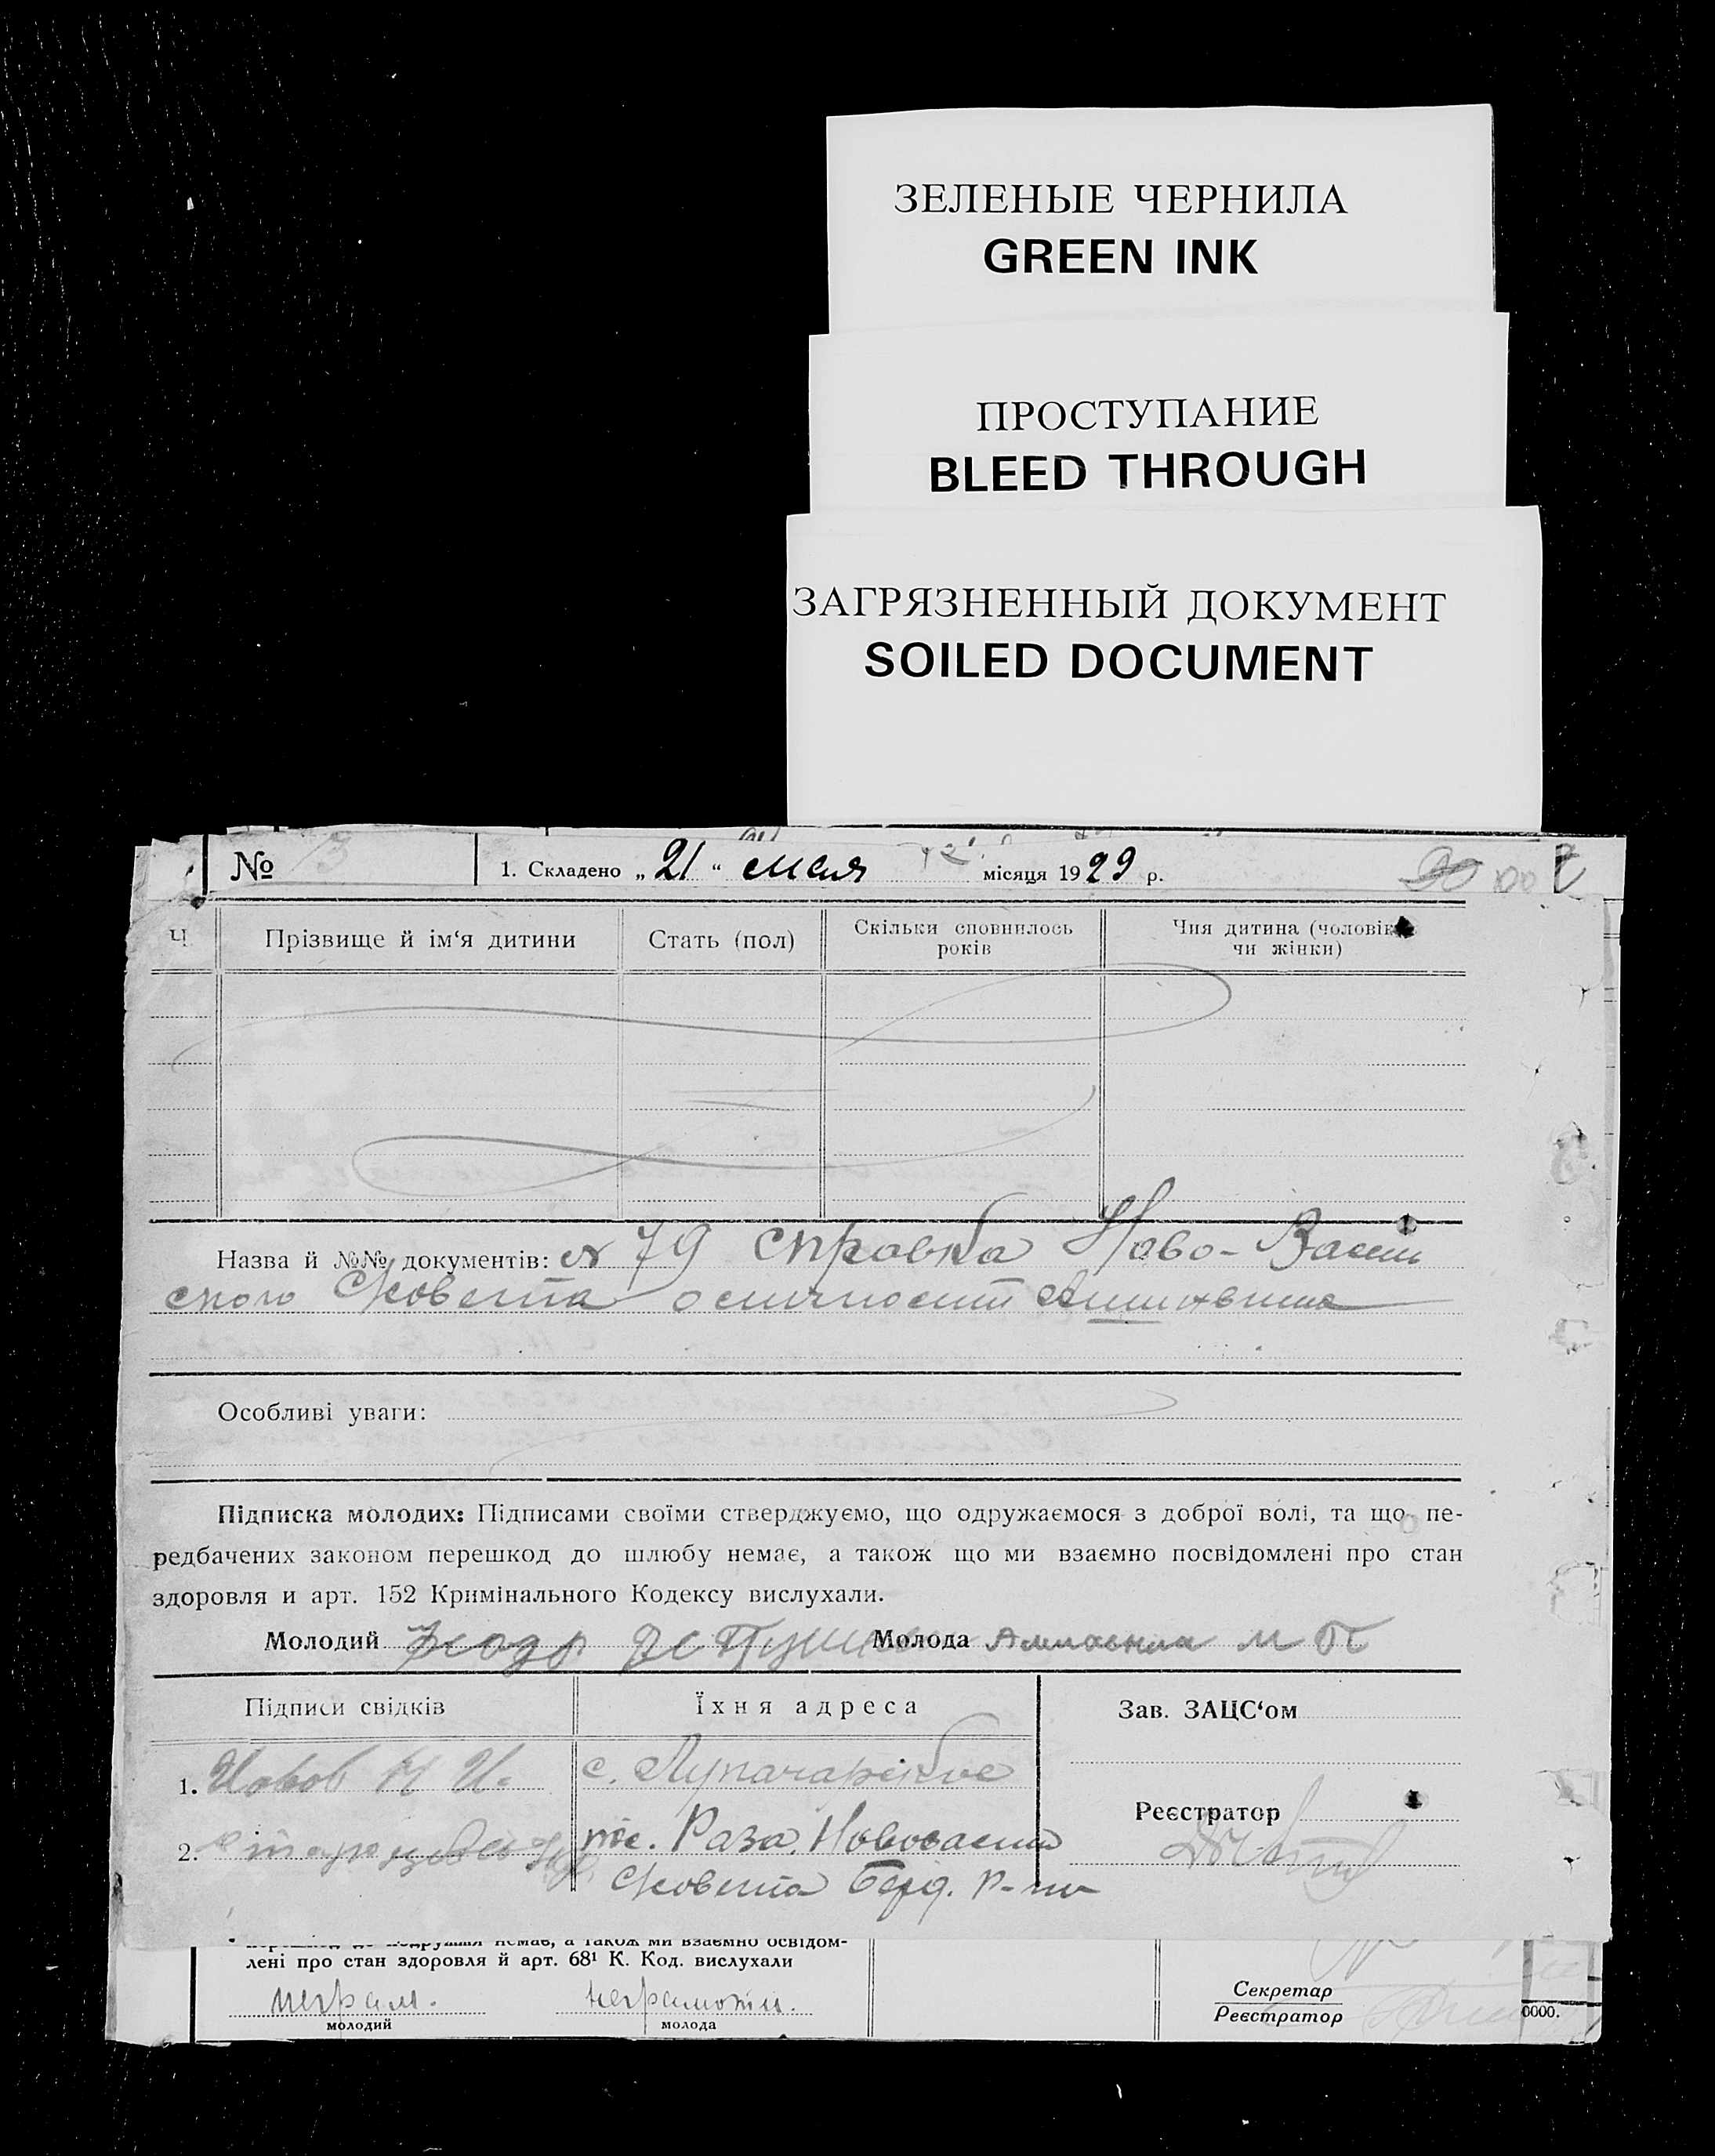 ЗЕЛЕНЫЕ ЧЕРНИЛА
GREEN INK
ПРОСТУПАНИЕ
BLEED THROUGH
ЗАГРЯЗНЕННЫЙ ДОКУМЕНТ
SOILED DOCUMENT
№ 1. Складено „ 21 “ мая місяця 1929 р.
Ч Прізвище й ім‘я дитини Стать (пол) Скільки сповнилось років Чия дитина (чоловіка чи жінки)
Назва й №№ документів: № 79 справка Ново-Васил
ского С/совета о личности
Особливі уваги:
Підписка молодих: Підписами своїми стверджуємо, що одружаємося з доброї волі, та що пе-
редбачених законом перешкод до шлюбу немає, а також що ми взаємно посвідомлені про стан
здоровля и арт. 152 Кримінального Кодексу вислухали.
Молодий Молода
Підписи свідків Їхня адреса Зав. ЗАЦС‘ом
1. с.
Реєстратор
2. пос. Роза, Нововасил
С/совета Берд. р-на
немає, а також ми взаємно освідом-
лені про стан здоровля й арт. 68¹ К. Код. вислухали
неграм. неграмотн.
молодий молода
Секретар
Реєстратор
0000.